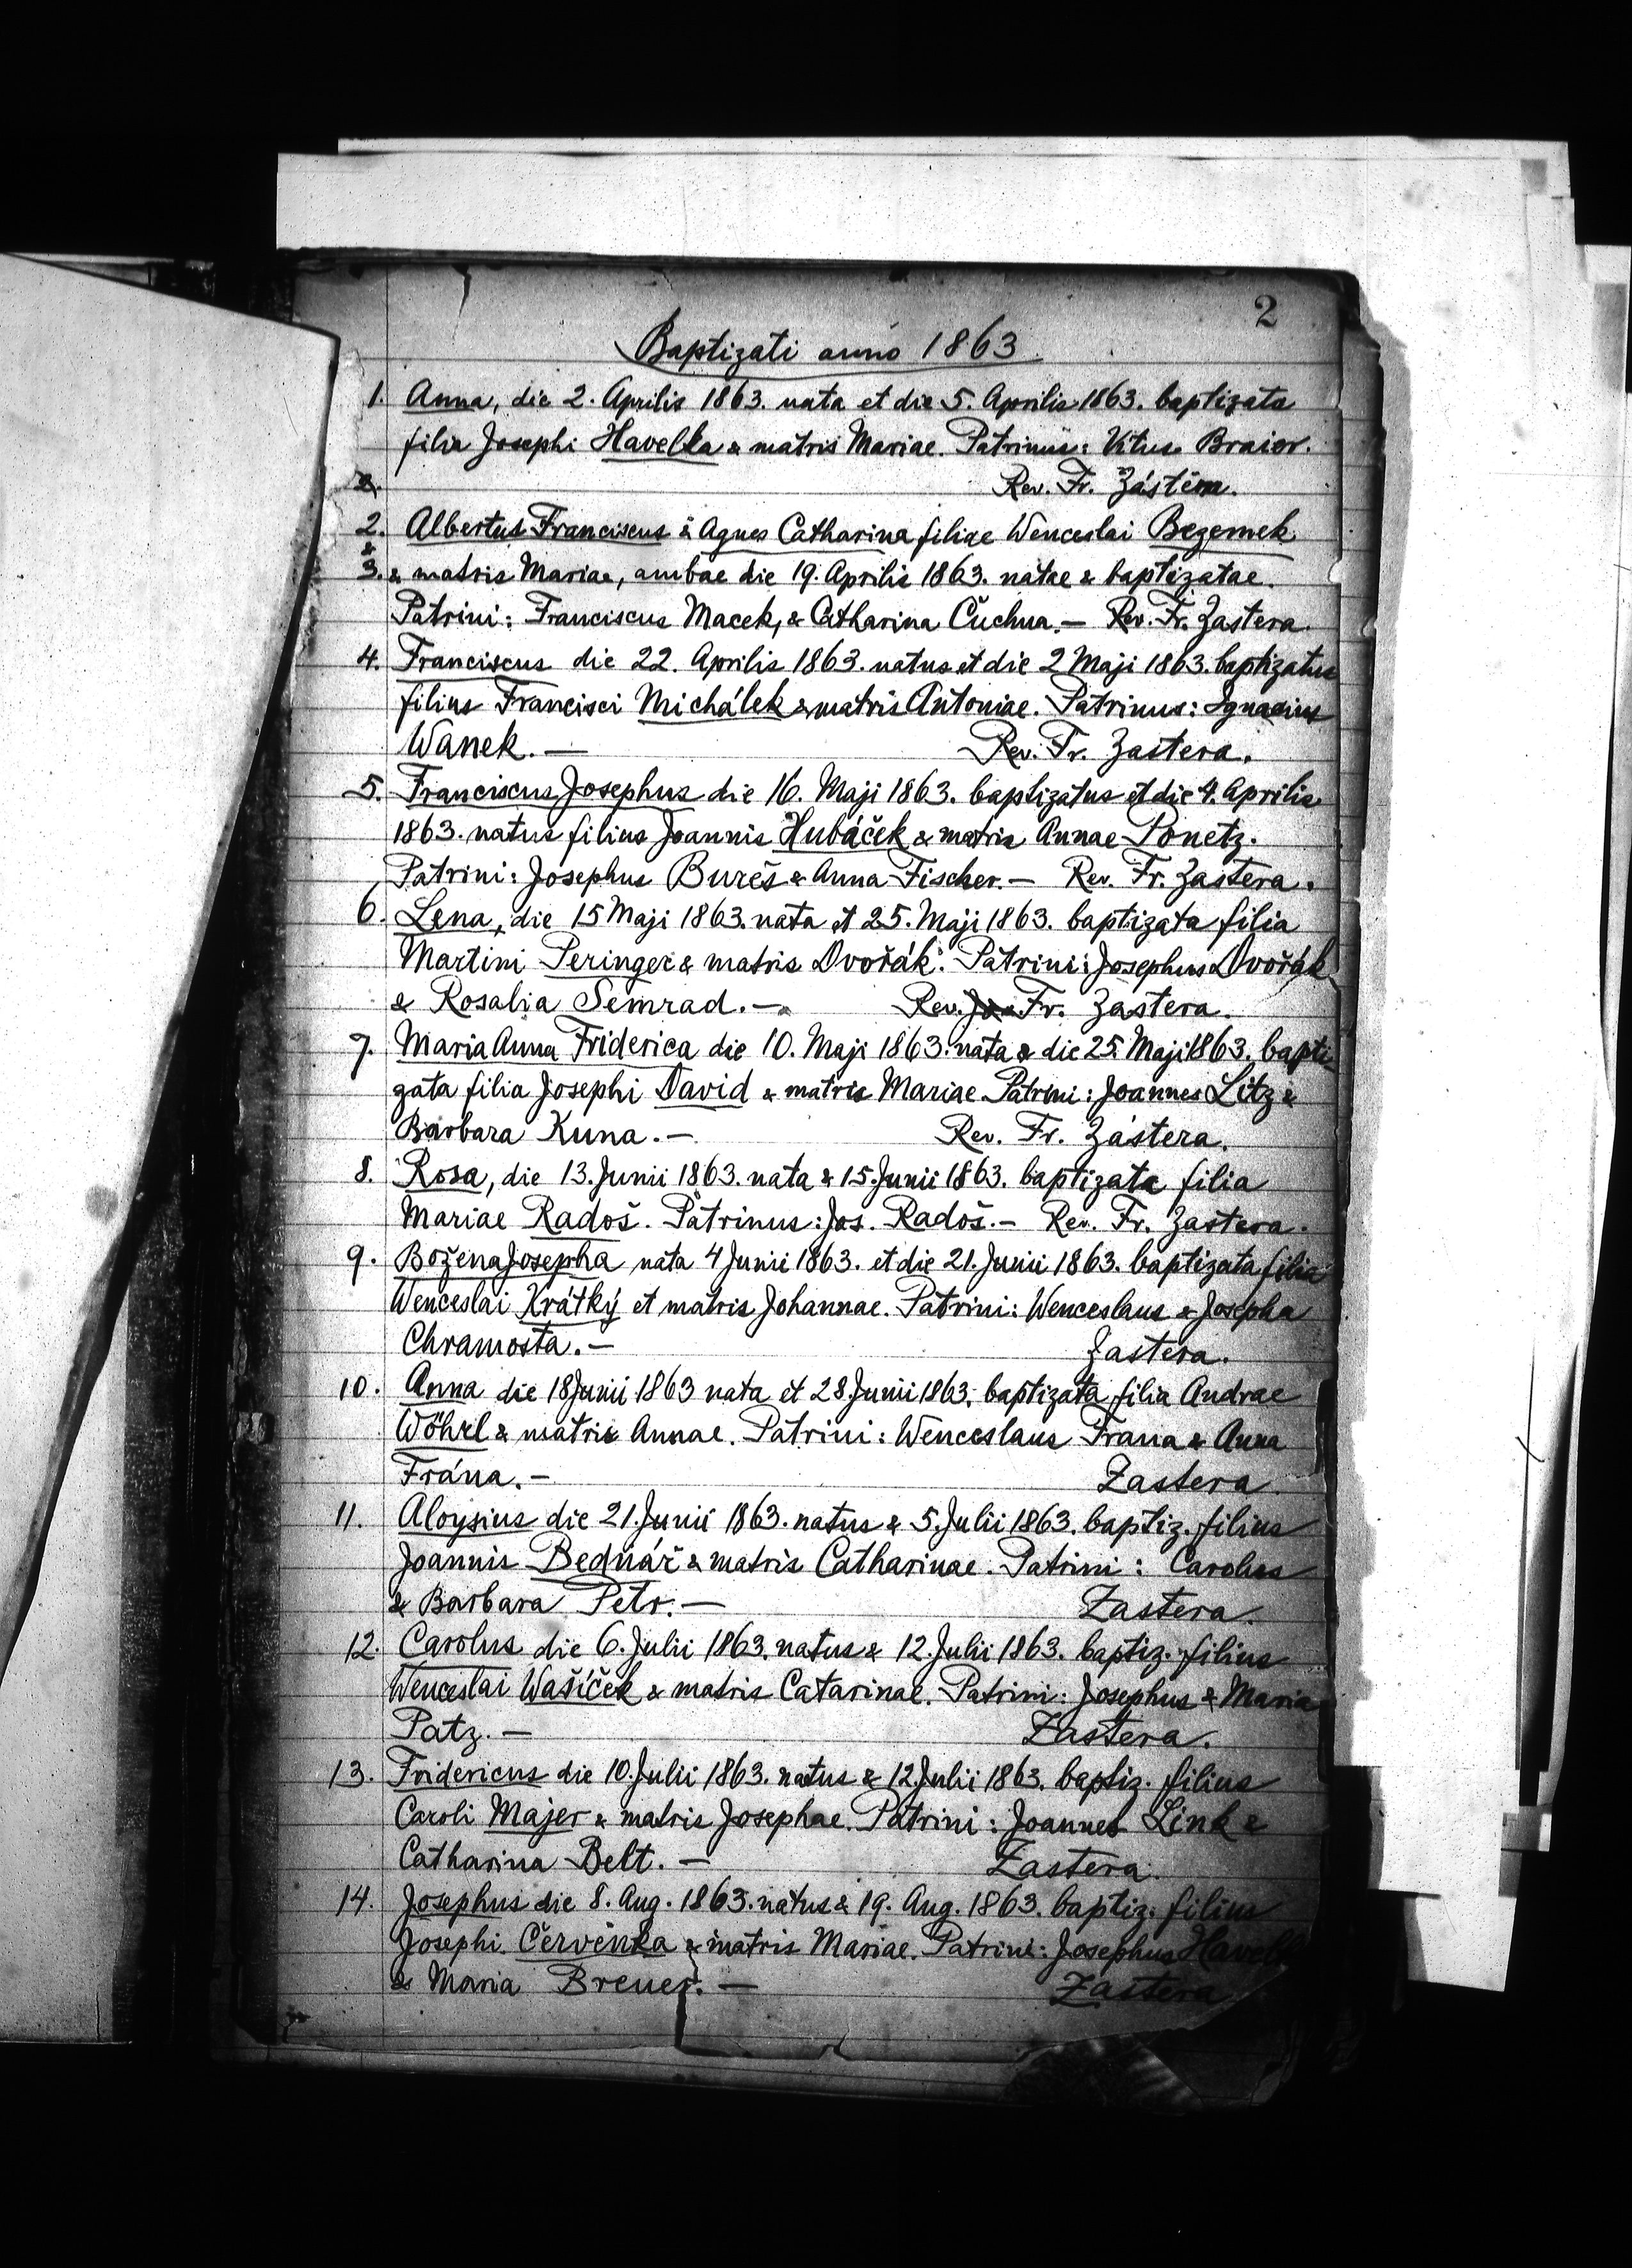 2
Baptizati anno 1863
1. Anna, die 2. Aprilis 1863. nata et die 5. Aprilis 1863. baptizata
filia Josephi Havelka & matris Mariae. Patrinus: Vitus Braier.
2. Rev. Fr. Zástěra.
2. Albertus Franciscus & Agnes Catharina filiae Wenceslai Bezemek
&
3. & matris Mariae, ambae die 19. Aprilis 1863. natae & baptizatae.
Patrini: Franciscus Macek, & Catharina Čuchna. — Rev. Fr. Zastera.
4. Franciscus die 22. Aprilis 1863. natus et die 2 Maji 1863. baptizatus
filius Francisci Michálek & matris Antoniae. Patrinus: Ignacius
Wanek. — Rev. Fr. Zastera.
5. Franciscus Josephus die 16. Maji 1863. baptizatus et die 4. Aprilis
1863. natus filius Joannis Hubáček & matris Annae Ponetz.
Patrini: Josephus Bureš & Anna Fischer. — Rev. Fr. Zastera.
6. Lena, die 15 Maji 1863. nata et 25. Maji 1863. baptizata filia
Martini Peringer & matris Dvořák. Patrini: Josephus Dvořák
& Rosalia Semrad. — Rev. Jos Fr. Zastera.
7. Maria Anna Friderica die 10. Maji 1863. nata & die 25. Maji 1863. bapti-
zata filia Josephi David & matris Mariae. Patrini: Joannes Litz &
Barbara Kuna. — Rev. Fr. Zástera.
8. Rosa, die 13. Junii 1863. nata & 15. Junii 1863. baptizata filia
Mariae Radoš. Patrinus: Jos. Radoš. — Rev. Fr. Zastera.
9. Božena Josepha nata 4 Junii 1863. et die 21. Junii 1863. baptizata filia
Wenceslai Krátký et matris Johannae. Patrini: Wenceslaus & Josepha
Chramosta. — Zastera.
10. Anna die 18 Junii 1863 nata et 28. Junii 1863. baptizata filia Andrae
Wöhrl & matris Annae. Patrini: Wenceslaus Frana & Anna
Frána. — Zastera
11. Aloysius die 21. Junii 1863. natus & 5. Julii 1863. baptiz. filius
Joannis Bednář & matris Catharinae. Patrini: Carolus
& Barbara Petr. — Zastera.
12. Carolus die 6. Julii 1863. natus & 12. Julii 1863. baptiz. filius
Wenceslai Wašíček & matris Catarinae. Patrini: Josephus & Maria
Patz. — Zastera.
13. Fridericus die 10. Julii 1863. natus & 12 Julii 1863. baptiz. filius
Caroli Majer & matris Josephae. Patrini: Joannes Link &
Catharina Belt. — Zastera.
14. Josephus die 8. Aug. 1863. natus & 19. Aug. 1863. baptiz. filius
Josephi Červenka & matris Mariae. Patrini: Josephus
& Maria Breuer. — Zastera